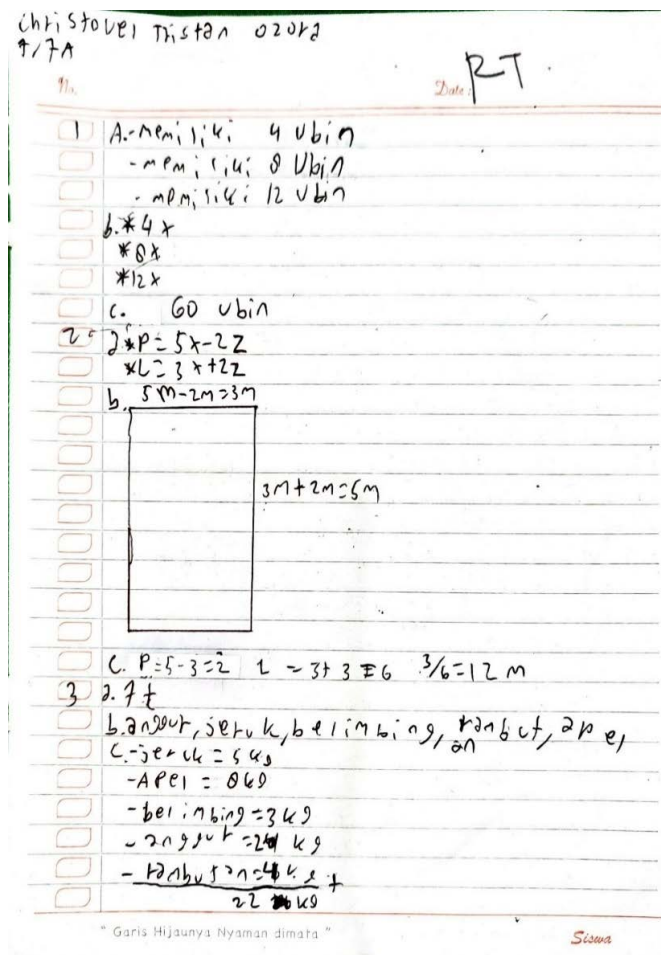 Christovel Tristan Ozora
7/7A
RT
No.
Date :
1 A.-memiliki 4 Ubin
-memiliki 8 Ubin
-memiliki 12 Ubin
b.*4x
*8x
*12x
c. 60 Ubin
2. a*P=5x-2z
*L=3x+2z
b. 5M-2M=3M
3M+2M=5M
C. P=5-3=2 L=3+3=6 3/6=12 M
3 a. 7t
b.anggur, jeruk, belimbing, rambutan, apel
C.-jeruk = 5kg
-APel = 8kg
-belimbing=3kg
-anggur=2 kg
-rambutan=4kg +
22 kg
" Garis Hijaunya Nyaman dimata "
Siswa